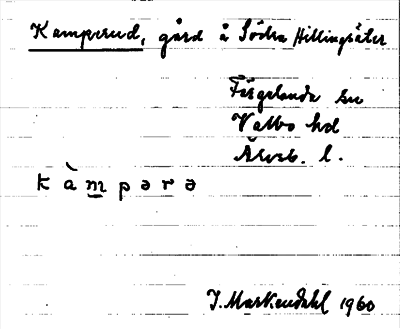 Kamperud, gård å Södra Hillingsäter
Färgelanda sn
Valbo hd
Älvsb. l.
k à m p ə r ə
J. Markendahl 1960